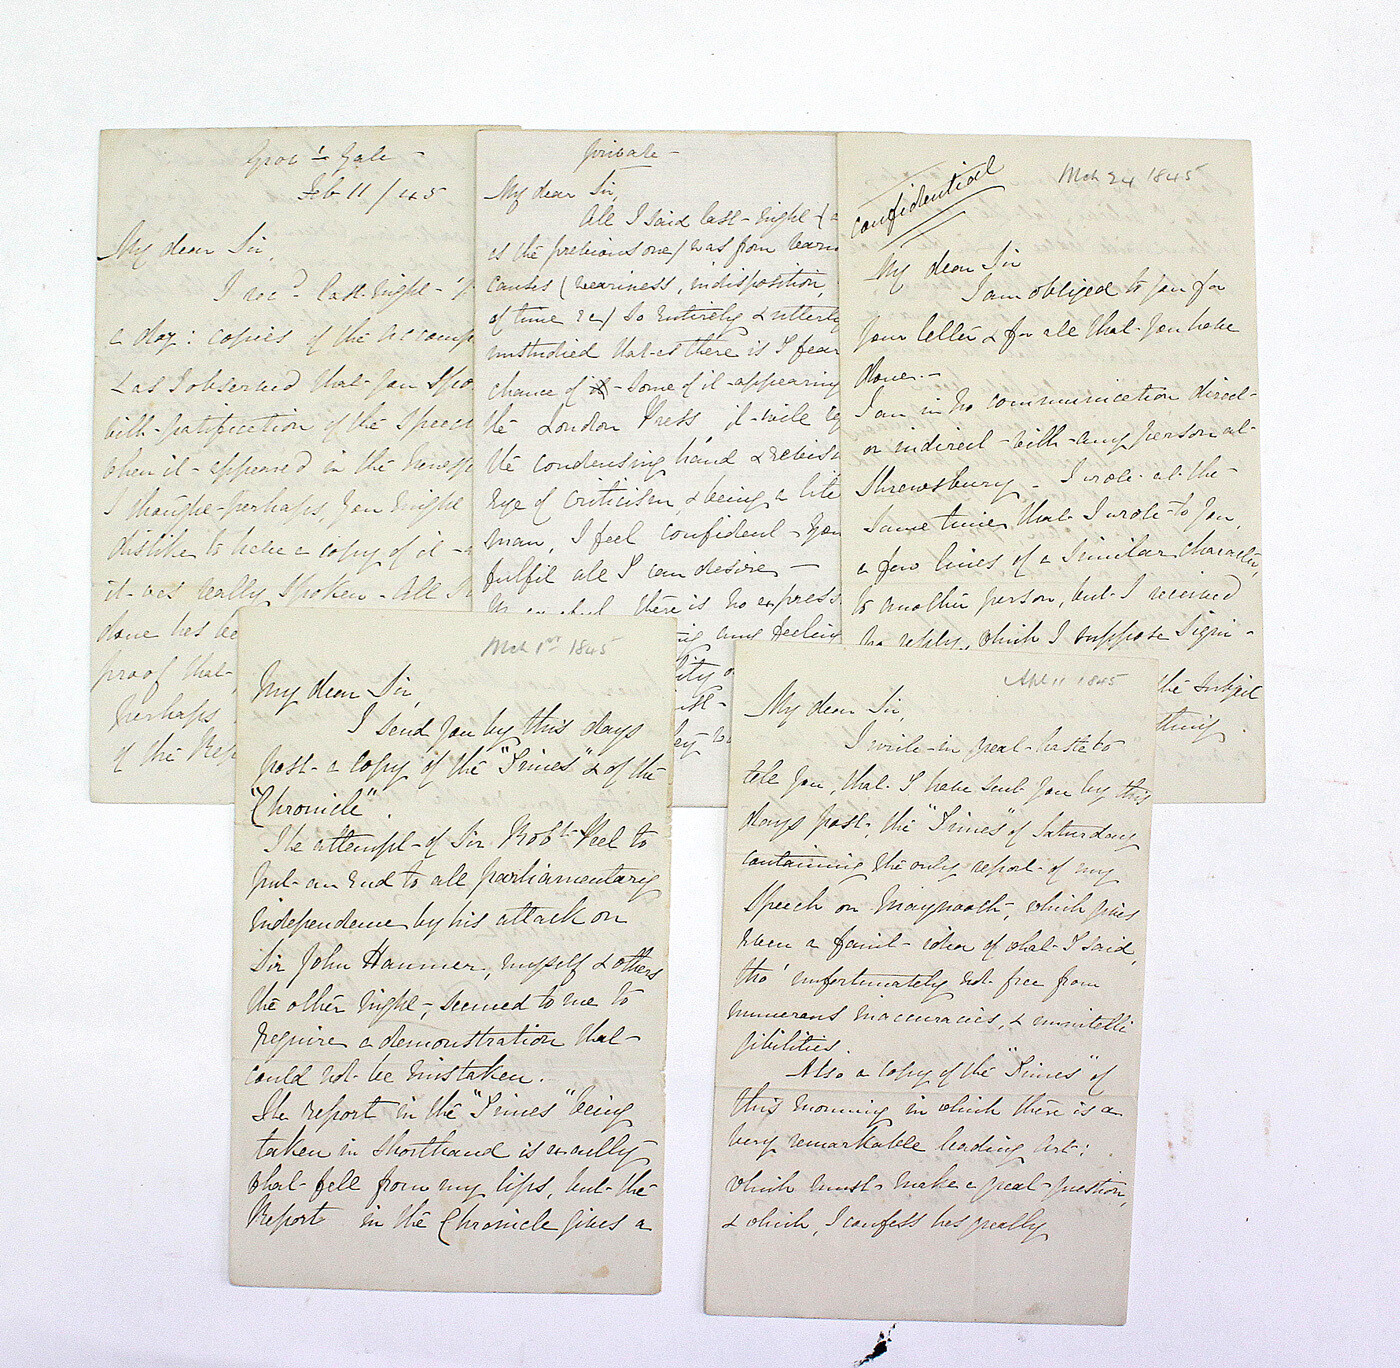 Gros.r Gate -
Feb 11 / 45
My dear Sir,
I rec.d last night - 
a day: copies of the accomp
& as I observed that you spo
with gratification of the Speec
when it appeared in the newsp
I thought perhaps, you might
dislike to have a copy of it -
it was really spoken - All I
done has be
proof that
perhaps
of the Rep
private -
My dear Sir,
All I said last night (
is the previous one) was from
causes (weariness, indisposition,
of time &c) so entirely & utterly
unstudied that as there is I fear
chance of - some of it appearing
the London Press it will
the condensing hand &
eye of criticism, & being a lite
man, I feel confident you
fulfil all I can desire -
there is no express
any feeling
confidential
Mch 24 1845
My dear Sir
I am obliged to you for
your letter & for all that you have
done. -
I am in no communication direct
or indirect with any person at
Shrewsbury - I wrote at the
same time that I wrote to you,
a few lines of a similar character,
to another person, but I received
no reply, which I suppose signi-
the subject
thing.
Mch 1st 1845
My dear Sir,
I send you by this days
post a copy of the "Times" & of the
"Chronicle".
The attempt of Sir Robt Peel to
put an end to all parliamentary
independence by his attack on
Sir John Hanmer, myself & others
the other night, seemed to me to
require a demonstration that
could not be mistaken.
The report in the "Times" being
taken in shorthand is really
what fell from my lips, but the
Report in the Chronicle gives a
Apl 11 1845
My dear Sir,
I write in great haste to
tell you, that I have sent you by this
days post, the "Times" of Saturday
containing the only report of my
Speech on Maynooth, which gives
even a faint idea of what I said,
tho' unfortunately not free from
numerous inaccuracies, & unintelli
gibilities.
Also a copy of the "Times" of
this morning in which there is a
very remarkable leading art:
which must make a great question,
& which, I confess has greatly